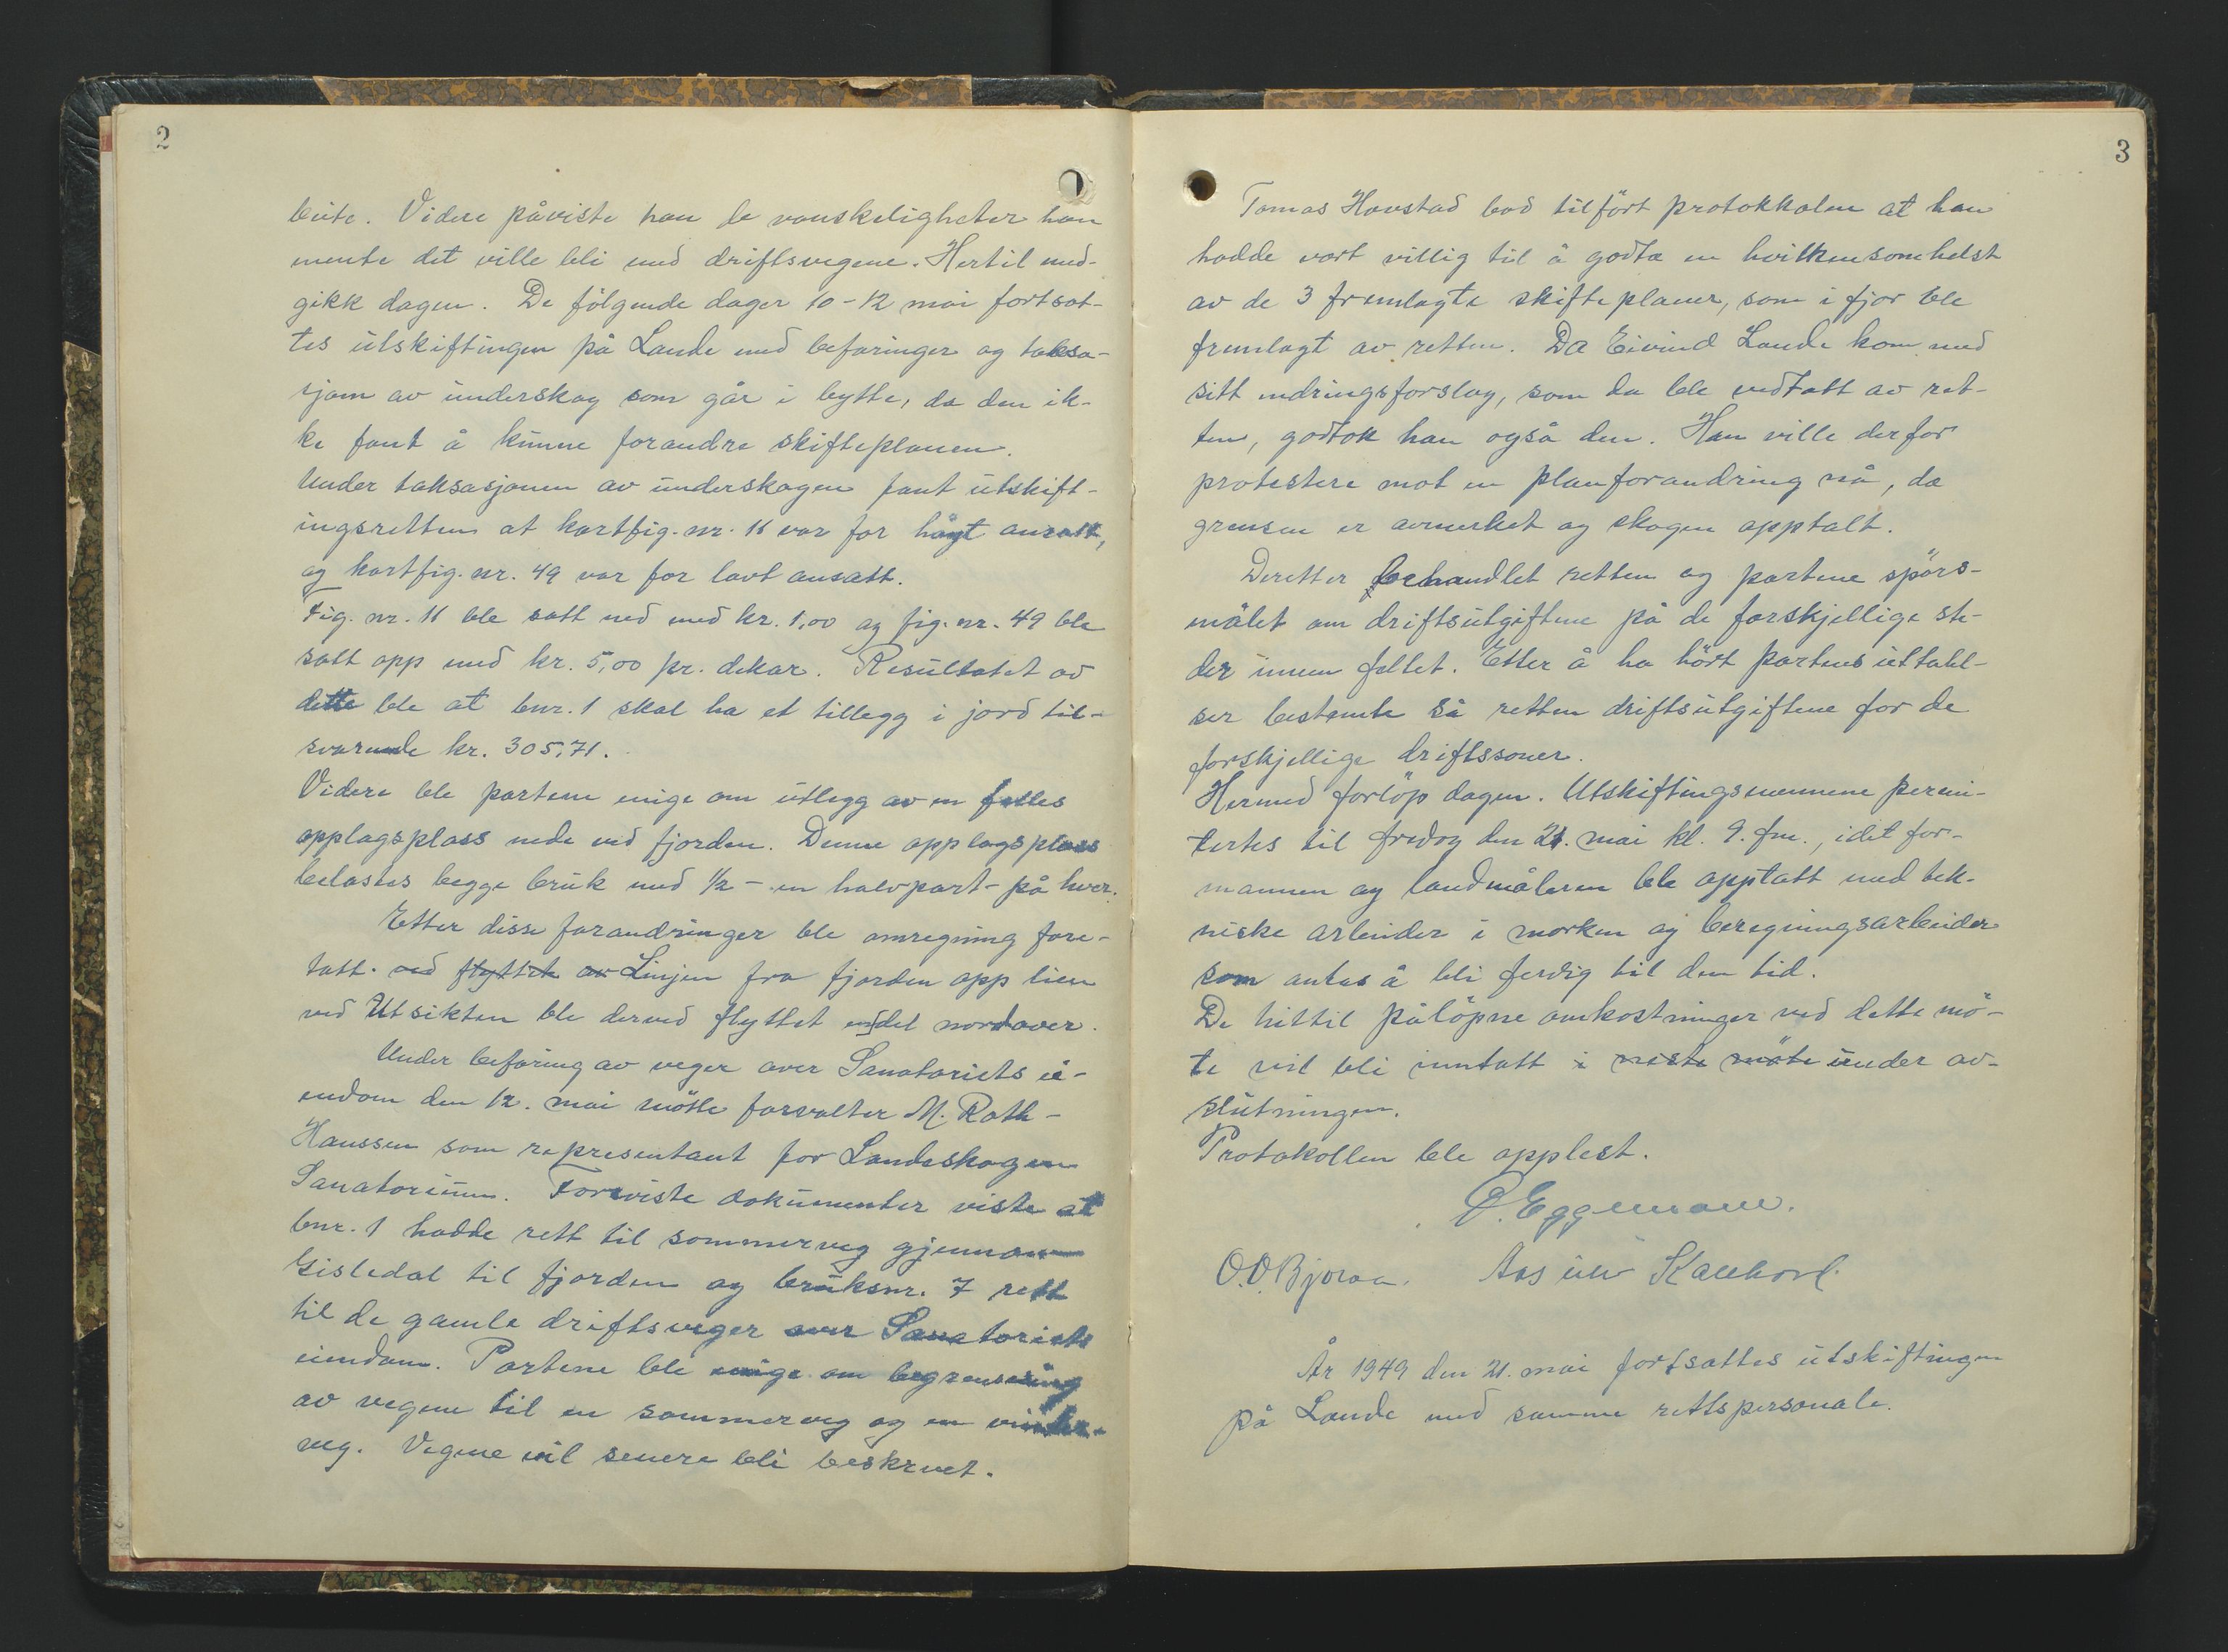 2
beite. Videre påviste han de vanskeligheter han
mente det ville bli med driftsvegene. Hertil med-
gikk dagen. De følgende dager 10-12 mai fortsat-
tes utskiftingen på Lande med befaringer og taksa-
sjon av underskog som går i bytte, da den ik-
ke fant å kunne forandre skifteplanen.
Under taksasjonen av underskogen fant utskift-
ingsretten at kartfig. nr. 16 var for høgt ansatt,
og kartfig. nr. 49 var for lavt ansatt.
Fig. nr. 16 ble satt ned med kr. 1,00 og fig. nr. 49 ble
satt opp med kr. 5,00 pr. dekar. Resultatet av
dette ble at bnr. 1 skal ha et tillegg i jord til-
svarende kr. 305,71.
Videre ble partene enige om utlegg av en felles
opplagsplass nede ved fjorden. Denne opplagsplass
belastes begge bruk med 1/2 - en halvpart - på hver.
Etter disse forandringer ble omregning fore-
tatt. ved flyttet av Linjen fra fjorden opp lien
ved Utsikten ble derved flyttet endel nordover.
Under befaring av veger over Sanatoriets ei-
endom den 12. mai møtte forvalter M. Roth-
Hanssen som representant for Landeskogen
Sanatorium. Foreviste dokumenter viste at
bnr. 1 hadde rett til sommerveg gjennom
Gisledal til fjorden og bruksnr. 7 rett
til de gamle driftsveger over Sanatoriets
eiendom. Partene ble enige om begrensning
av vegene til en sommerveg og en vinter-
veg. Vegene vil senere bli beskrvet.
3
Tomas Hovstad bad tilført protokkolen at han
hadde vært villig til å godta en hvilkensomhelst
av de 3 fremlagte skifteplaner, som i fjor ble
fremlagt av retten. Da Eivind Lande kom med
sitt endringsforslag, som da ble vedtatt av ret-
ten, godtok han også den. Han ville derfor
protestere mot en planforandring nå, da
grensen er avmerket og skogen opptalt.
Deretter behandlet retten og partene spörs-
målet om driftsutgiftene på de forskjellige ste-
der innen feltet. Etter å ha hört partenes uttalel-
ser bestemte så retten driftsutgiftene for de
forskjellige driftssoner.
Hermed forlöp dagen. Utskiftingsmennene permi-
tertes til fredag den 21. mai kl. 9. fm., idet for-
mannen og landmåleren ble opptatt med tek-
niske arbeider i marken og beregningsarbeider
som antas å bli ferdig til den tid.
De hittil pålöpne omkostninger ved dette mö-
te vil bli inntatt i neste möte under av-
slutningen.
Protokollen ble opplest.
Eggemoen.
O.O. Bjoraa. Aasulv
År 1949 den 21. mai fortsattes utskiftingen
på Lande med samme rettspersonale.